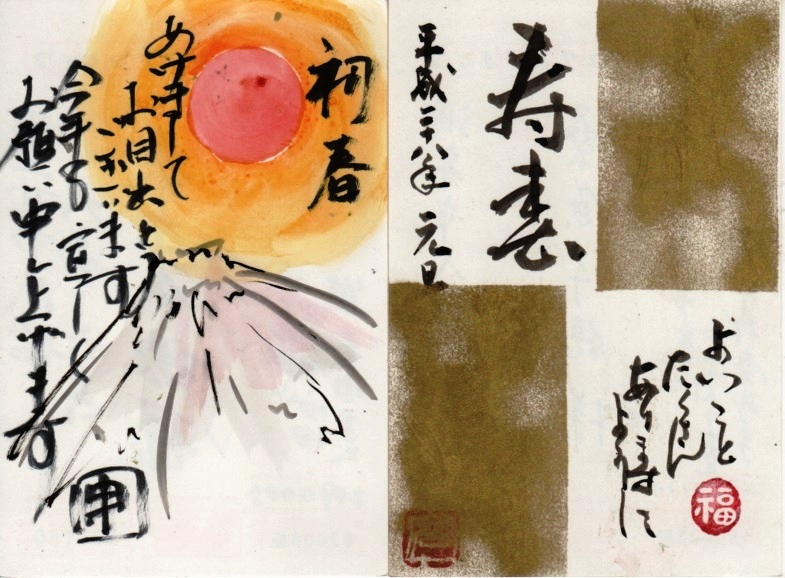 初春
あけまして
お目出とう
ございます
今年も宜しく
お願い申し上げま寿
申
寿春
平成二十八年 元旦
よいこと
たくさん
ありま寿
ように
福